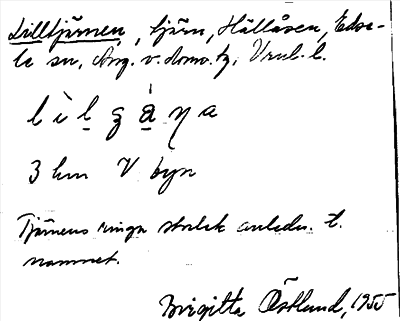 Lilltjärnen, tjärn, Hällåsen, Edse-
le sn, Ång. v. doms. tg, 
l ì l g å̀ ŋ a
3 km V byn
Tjärnens ringa storlek anledn. t.
namnet.
Birgitta Östlund, 1955